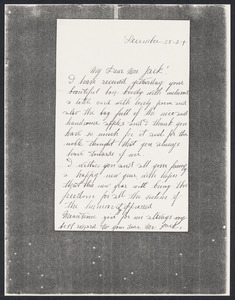 December 28-29
My Dear Mrs. Jack!
I have received yesterday your
beautiful box, with
a little card with lovely poem and
also the bag full of the nice and
handsome apples and I thank you
have so much for it and for the
noble thought that you always
have towards of me.
I wishes you and all your family
a happy new year with hopes
that this new year will bring the
freedom for all the
the
good for me always my
best regard to your dear Mr. Jack,